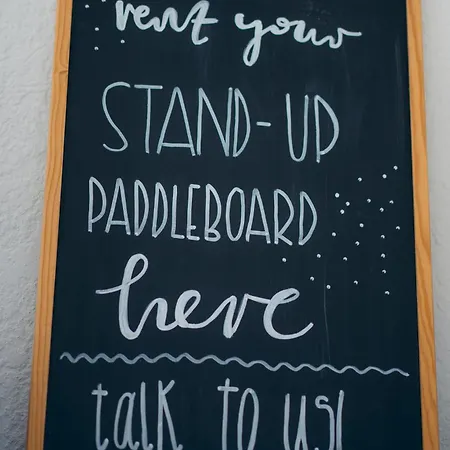 rent your
STAND-UP
PADDLEBOARD
here
talk to us!